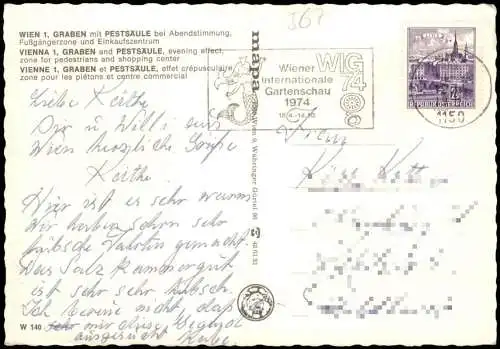 WIEN 1, GRABEN mit PESTSÄULE bei Abendstimmung,
Fußgängerzone und Einkaufszentrum
VIENNA 1, GRABEN and PESTSÄULE, evening effect,
zone for pedestrians and shopping center
VIENNE 1, GRABEN et PESTSÄULE, effet crépusculaire,
zone pour les piétons et centre commercial
367
mapa
Wiener
Internationale
Gartenschau
1974
18.4.-14.10.
WIG
74
REPUBLIK ÖSTERREICH
1150
Liebe Käthe
Dir u Willi aus
Wien herzliche Grüße
Käthi
Hier ist es sehr warm
Wir haben schon sehr
hübsche Fahrten gemacht
Das Salzkammergut
ist sehr sehr hübsch.
Ich bereue nicht, daß
wir diese Gegend
ausgesucht habe
W 140